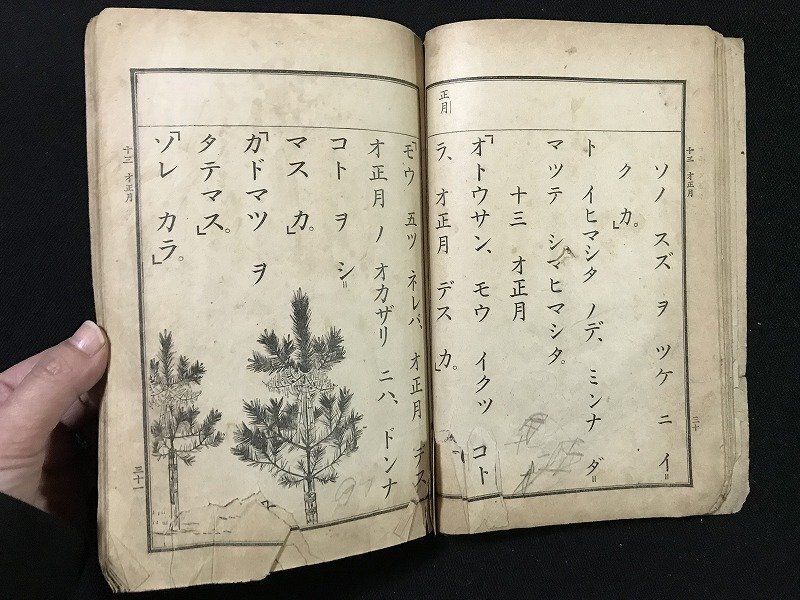 十三 オ正月
三十
ソノ スズ ヲ ツケ ニ イ=
ク カ。」
ト イヒマシタ ノデ、ミンナ ダ=
マツテ シマヒマシタ。
十三 オ正月
「オトウサン、モウ イクツ コト
ラ、オ正月 デス カ。」
正月
「モウ 五ツ ネレバ、オ正月 デス
オ正月 ノ オカザリ ニハ、ドンナ
コト ヲ シ=
マス カ。」
「カドマツ ヲ
タテマス。」
「ソレ カラ。」
十三 オ正月
三十一